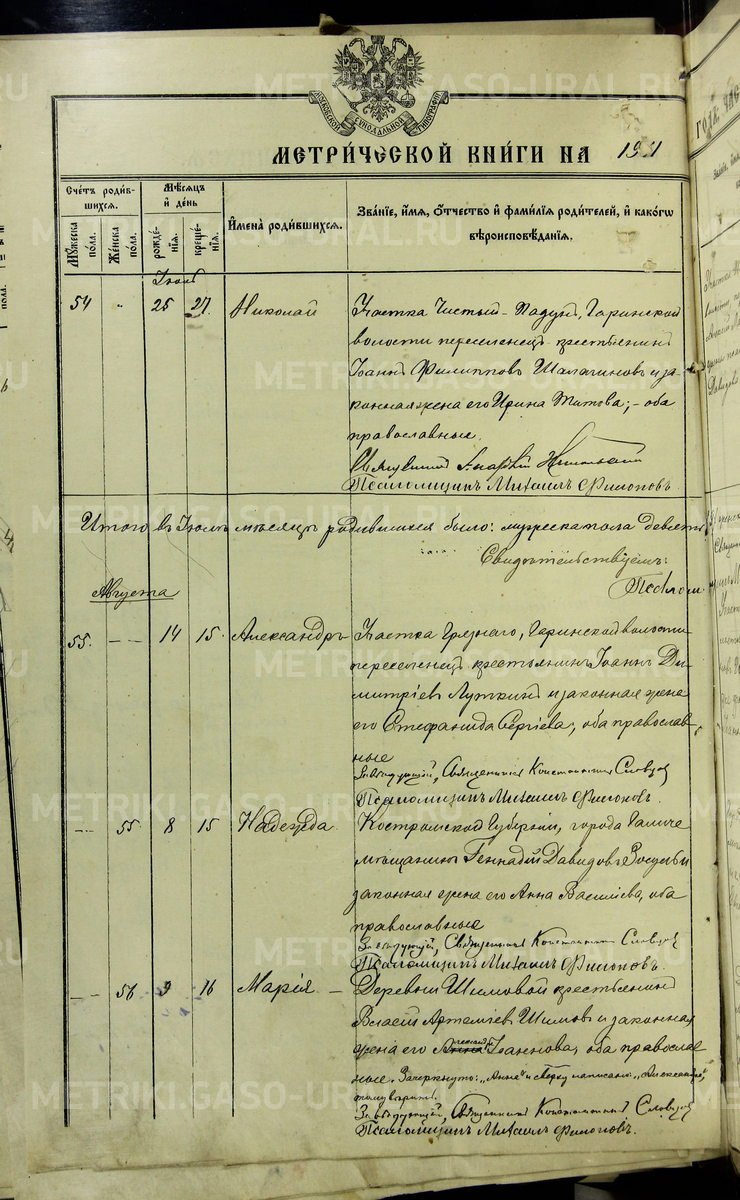 МОСКОВСКОЙ СѴНОДАЛЬНОЙ ТИПОГРАФІИ
МЕТРИЧЕСКОЙ КНИГИ НА 1911
Счетъ родившихся.
Мужеска пола.
Женска пола.
Мѣсяцъ и день
рожденія.
крещенія.
Имена родившихся.
Званіе, имя, отчество и фамилія родителей, и какого
вѣроисповѣданія.
Іюль
54 „ 25 27. Николай
Участка Чистый-Падунъ, Гаринской
волости переселенецъ крестьянинъ
Іоаннъ Филипповъ Шалагиновъ и за-
конная жена его Ирина Титова; - оба
православные.
Священникъ Андрей
Псаломщикъ Михаилъ Филоновъ.
Итого въ Іюлѣ мѣсяцѣ родившихся было: мужеска пола девять
Свидѣтельствуемъ:
Псалом
Августа
55. — — 14 15. Александръ
Участка Грязнаго, Гаринской волости
переселенецъ крестьянинъ Іоаннъ Ди-
митріевъ Луткинъ и законная жена
его Стефанида Сергіева, оба православ-
ные
Завѣдующій, Священникъ Константинъ Словцовъ
Псаломщикъ Михаилъ Филоновъ.
— — 55. 8 15 Надежда.
Костромской Губерніи, города Галича
мѣщанинъ Геннадій Давидовъ и
законная жена его Анна Васильева, оба
православные
Завѣдующій, Священникъ Константинъ Словцовъ
Псаломщикъ Михаилъ Филоновъ.
— — 56 9 16 Марія —
Деревни Шимовой крестьянинъ
Власій Артеміевъ Шимовъ и законная
жена его Анна Іоаннова, оба православ-
ные. Зачеркнуто: „Анна" и сверху написано: „Александра",
тому вѣрить.
Завѣдующій, Священникъ Константинъ Словцовъ
Псаломщикъ Михаилъ Филоновъ.
METRIKI.GASO-URAL.RU